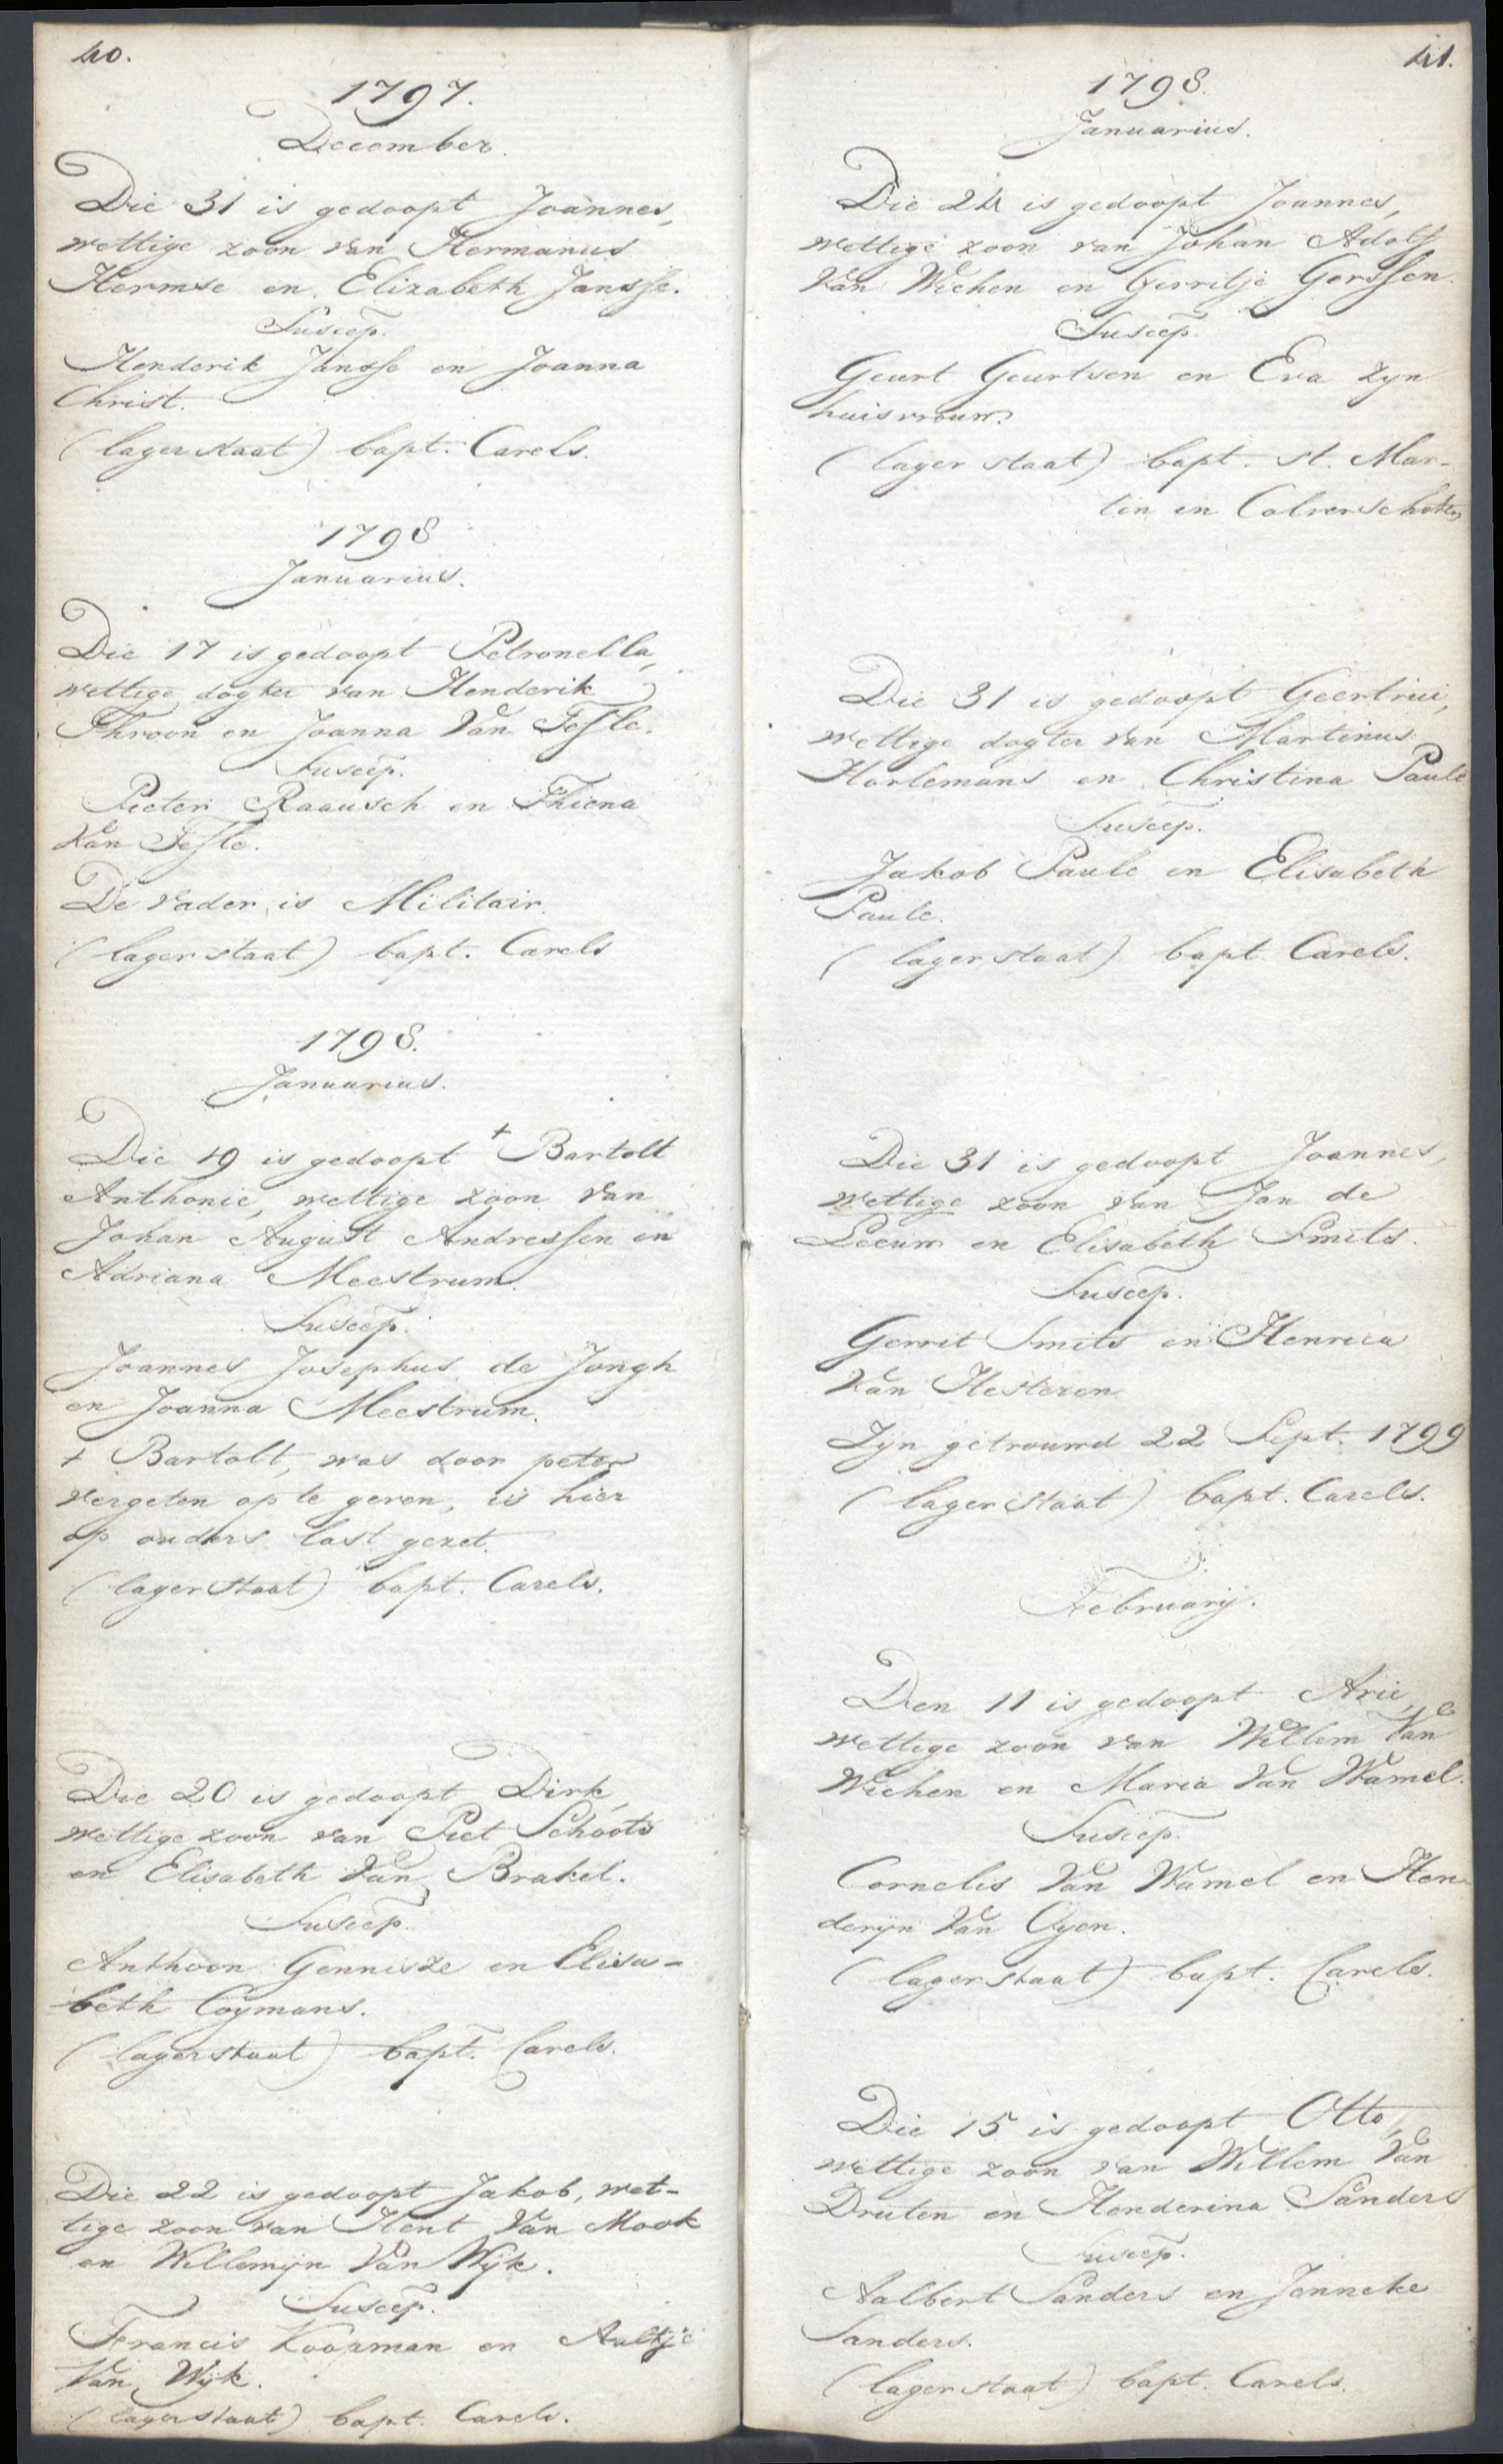 40.
1797.
December.
Die 31 is gedoopt Joannes,
wettige zoon van Hermanus
Hermse en Elizabeth Jansse.
Suscep.
Henderik Jansse en Joanna
Christ.
(lager staat) bapt. Carels.
1798
Januarius.
Die 17 is gedoopt Petronella,
wettige dogter van Henderik
Throon en Joanna Van Tessle.
Suscep.
Pieter Raausch en Thiena
Van Tessle.
De vader is Militair.
(lager staat) bapt. Carels
1798.
Januarius.
Die 19 is gedoopt + Bartolt
Anthonie, wettige zoon van
Johan August Andressen en
Adriana Meestrum.
Suscep.
Joannes Josephus de Jongh
en Joanna Meestrum.
+ Bartolt, was door peter
vergeten op te geven, is hier
op ouders last gezet.
(lager staat) bapt. Carels.
Die 20 is gedoopt Dirk,
wettige zoon van Piet Schoots
en Elisabeth Van Brakel.
Suscep.
Anthoon Gennisze en Elisa-
beth Coymans.
(lager staat) bapt. Carels.
Die 22 is gedoopt Jakob, wet-
tige zoon van Hent Van Mook
en Willemijn Van Wijk.
Suscep.
Francis Koopman en Aaltje
Van Wijk.
(lager staat) bapt. Carels.
41.
1798.
Januarius.
Die 24 is gedoopt Joannes,
wettige zoon van Johan Adolf
Van Wichen en Gerritje Gerssen.
Suscep.
Geurt Geurtsen en Eva zyn
huisvrouw.
(lager staat) bapt. st. Mar-
tin en Calverschoten
Die 31 is gedoopt Geertrui,
wettige dogter van Martinus
Horlemans en Christina Paule
Suscep.
Jakob Paule en Elisabeth
Paule.
(lager staat) bapt. Carels.
Die 31 is gedoopt Joannes,
wettige zoon van Jan de
Leeuw en Elisabeth Smits.
Suscep.
Gerrit Smits en Henrica
Van Hesteren
Zyn getrouwd 22 Sept. 1799
(lager staat) bapt. Carels.
February.
Den 11 is gedoopt Arie,
wettige zoon van Willem Van
Wichen en Maria Van Wamel.
Suscep.
Cornelis Van Wamel en Hen-
derijn Van Oyen.
(lager staat) bapt. Carels.
Die 15 is gedoopt Otto,
wettige zoon van Willem Van
Druten en Henderina Sanders
Suscep.
Aalbert Sanders en Jenneke
Sanders.
(lager staat) bapt. Carels.